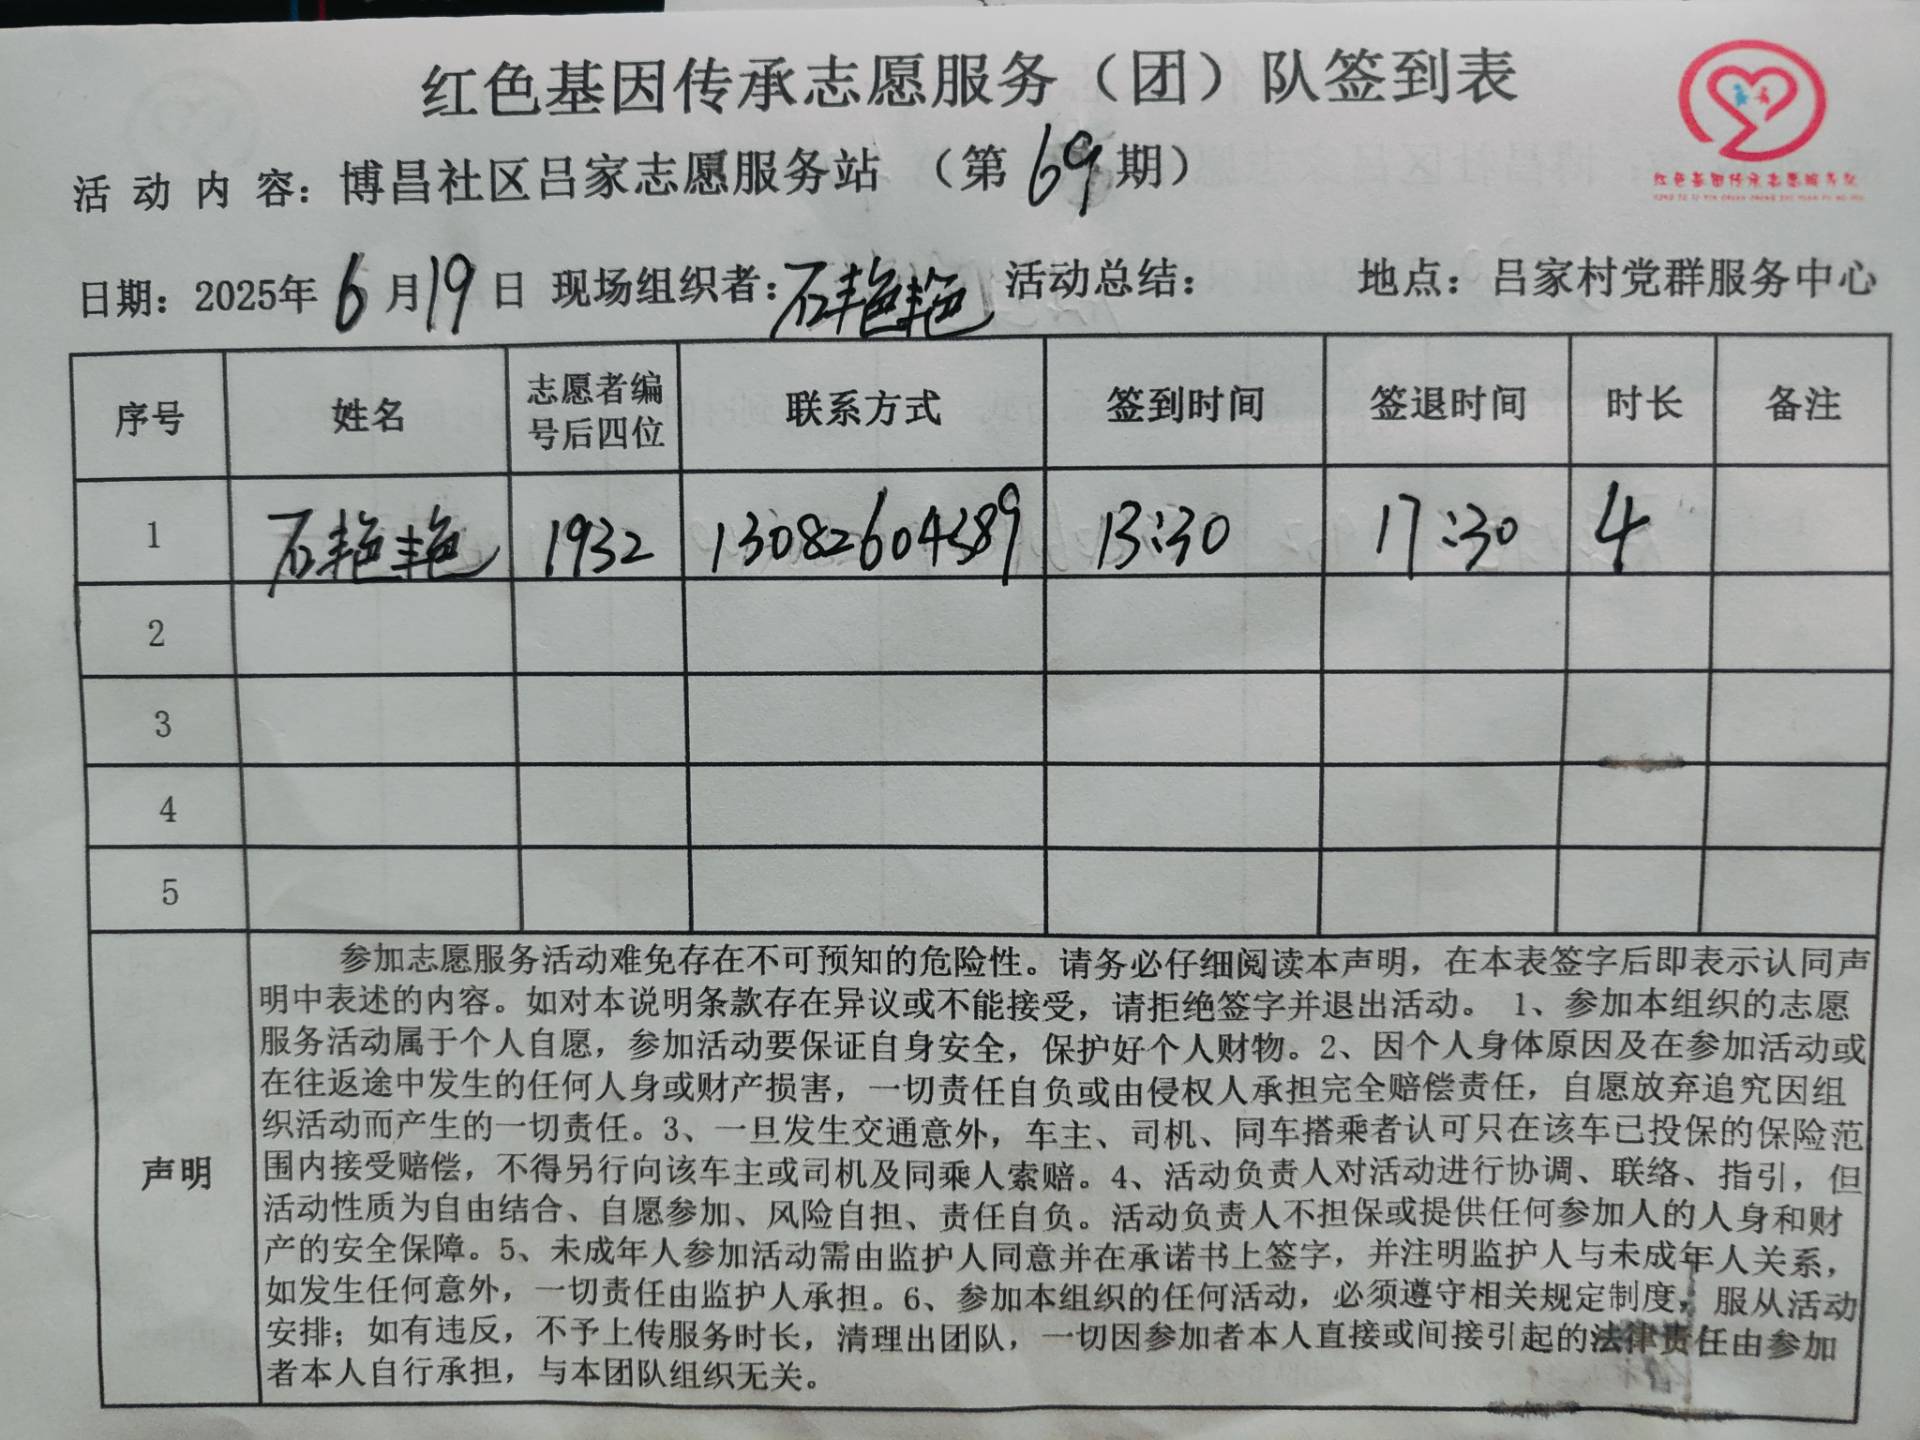 红色基因传承志愿服务（团）队签到表
红色基因传承志愿服务队
活 动 内 容：博昌社区吕家志愿服务站 （第69期）
日期：2025年6月19日 现场组织者：石艳艳 活动总结： 地点：吕家村党群服务中心
序号 姓名 志愿者编号后四位 联系方式 签到时间 签退时间 时长 备注
1 石艳艳 1932 13082604389 13:30 17:30 4
2
3
4
5
声明
参加志愿服务活动难免存在不可预知的危险性。请务必仔细阅读本声明，在本表签字后即表示认同声
明中表述的内容。如对本说明条款存在异议或不能接受，请拒绝签字并退出活动。 1、参加本组织的志愿
服务活动属于个人自愿，参加活动要保证自身安全，保护好个人财物。2、因个人身体原因及在参加活动或
在往返途中发生的任何人身或财产损害，一切责任自负或由侵权人承担完全赔偿责任，自愿放弃追究因组
织活动而产生的一切责任。3、一旦发生交通意外，车主、司机、同车搭乘者认可只在该车已投保的保险范
围内接受赔偿，不得另行向该车主或司机及同乘人索赔。4、活动负责人对活动进行协调、联络、指引，但
活动性质为自由结合、自愿参加、风险自担、责任自负。活动负责人不担保或提供任何参加人的人身和财
产的安全保障。5、未成年人参加活动需由监护人同意并在承诺书上签字，并注明监护人与未成年人关系，
如发生任何意外，一切责任由监护人承担。6、参加本组织的任何活动，必须遵守相关规定制度，服从活动
安排；如有违反，不予上传服务时长，清理出团队，一切因参加者本人直接或间接引起的法律责任由参加
者本人自行承担，与本团队组织无关。